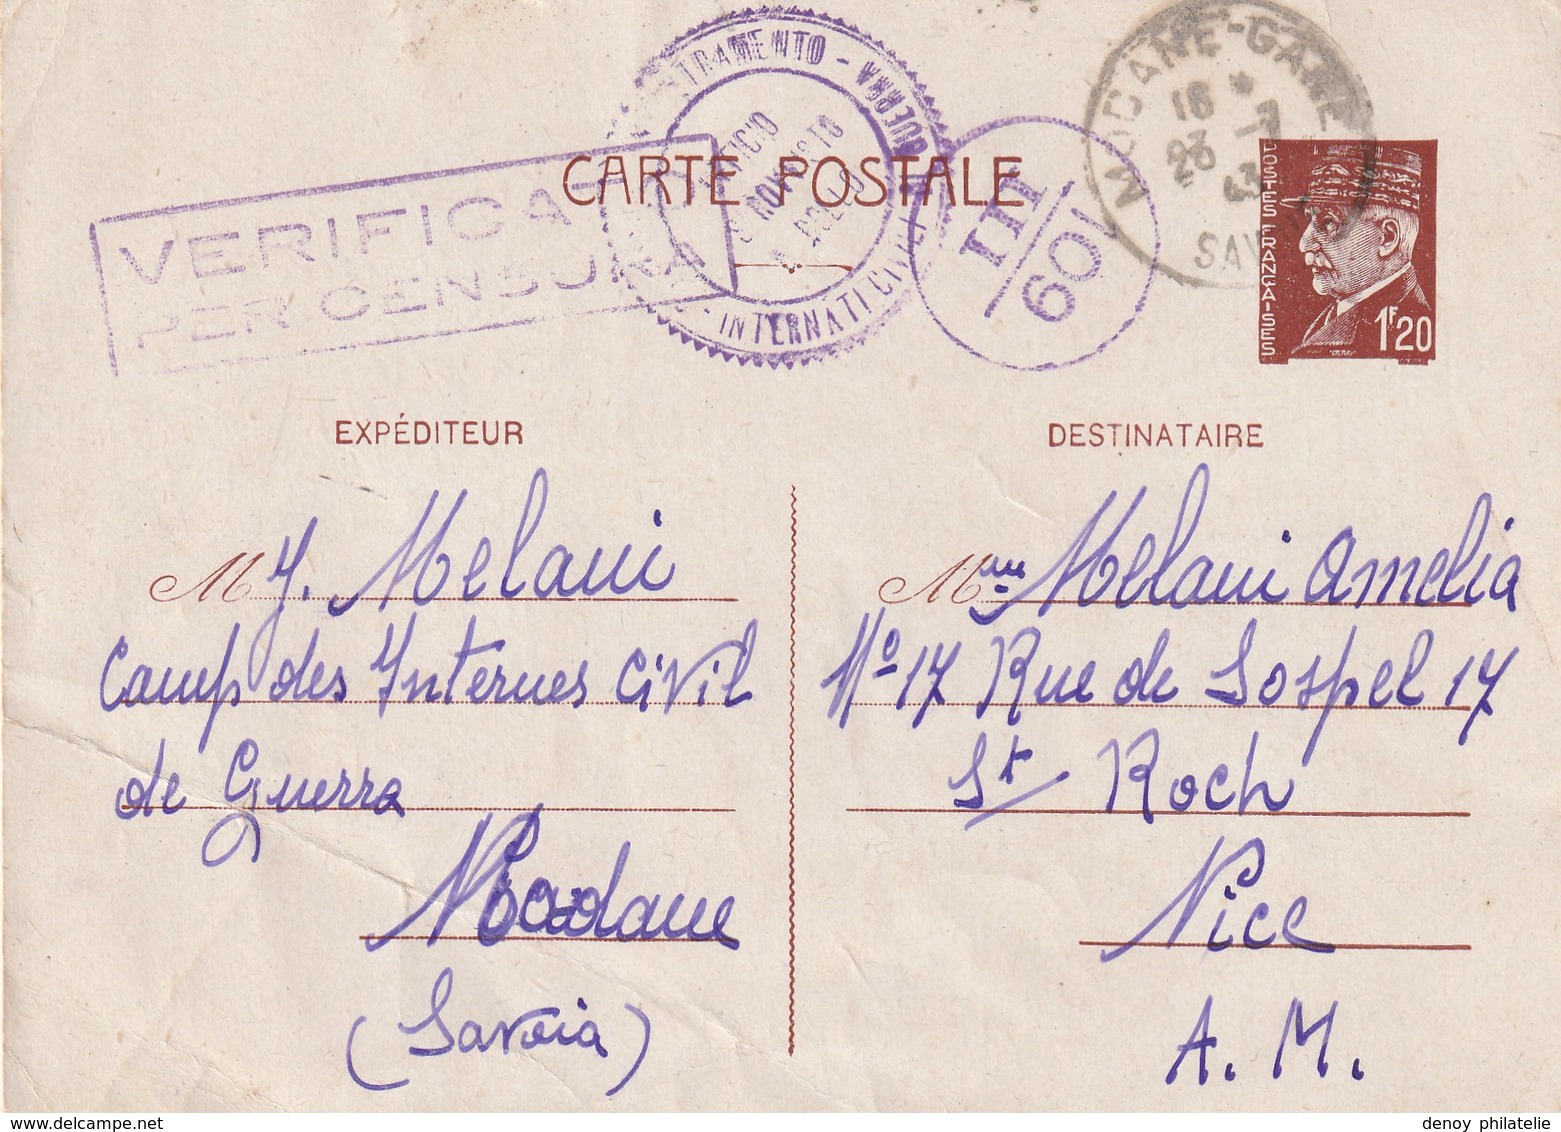 CARTE POSTALE
VERIFICATA
PER CENSURA
INTERNATI CIVILI
GUERRA
III
601
MODANE-GARE
18 *
23 -7
43
SAVOIE
POSTES FRANÇAISES
1F20
EXPÉDITEUR
M J. Melani
Camp des Internes Civil
de Guerra
Modane
(Savoia)
DESTINATAIRE
Mme Melani Amelia
No 17 Rue de Sospel 17
St Roch
Nice
A. M.
denoy philatelie